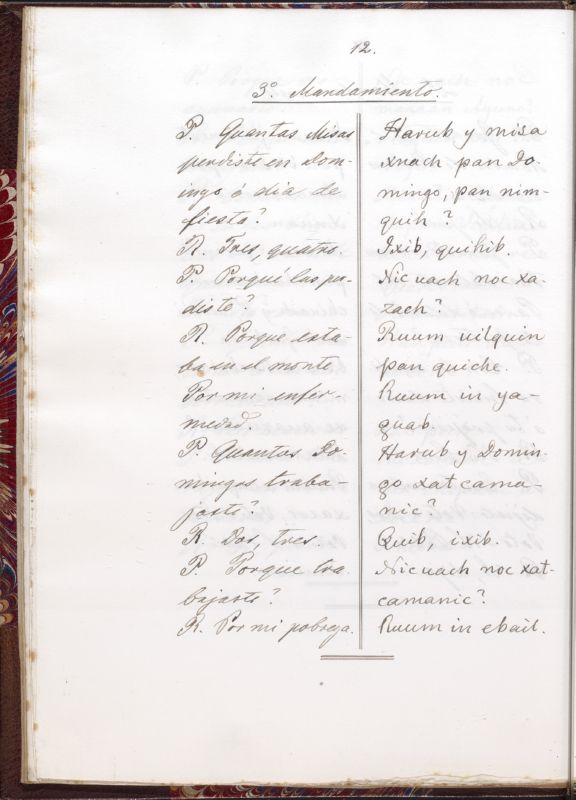 12.
3º. Mandamiento.
P. Quantas Misas
perdiste en Dom-
ingo ó dia de
fiesta?
R. Tres, quatro.
P. Porqué las per-
diste?
R. Porque esta-
ba en el monte.
Por mi enfer-
medad.
P. Quantas Do-
mingos traba-
jaste?
R. Dos, tres.
P. Porque tra-
bajaste?
R. Por mi pobreza.
Harub y misa
xnach pan Do-
mingo, pan nim-
quih?
Ixib, quihib.
Nic uach noc xa-
zach?
Ruum uilquin
pan quiche.
Ruum in ya-
guab.
Harub y Domin-
go xat cama-
nic?
Quib, ixib.
Nic uach noc xat-
camanic?
Ruum in ebail.